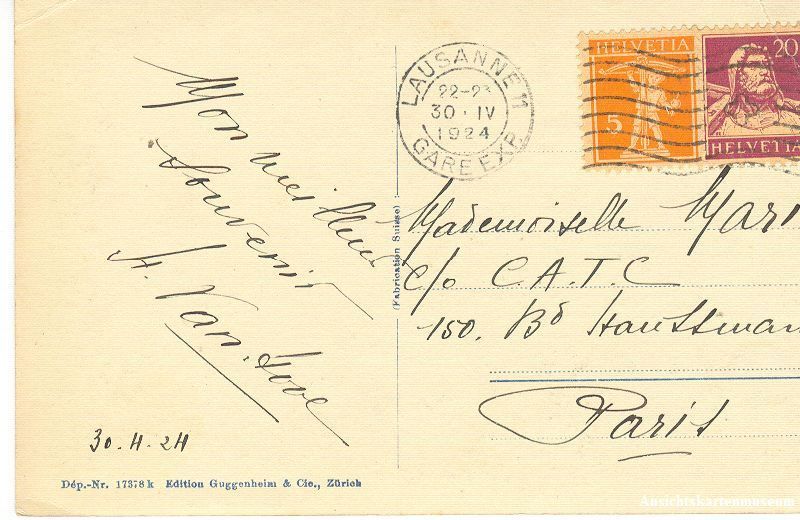 Mon meilleur
souvenir
H. Van.
30.4.24
Dép.-Nr. 17378 k Edition Guggenheim & Cie., Zürich
(Fabrication Suisse)
LAUSANNE 11
22-23
30·IV
1924
GARE EXP.
HELVETIA
5
20
HELVETIA
Mademoiselle Mari
c/o C.A.T.C
150. Bd Haussman
Paris
Ansichtskartenmuseum